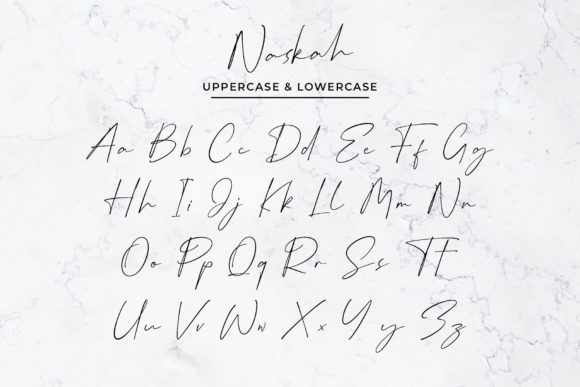 Naskah
UPPERCASE & LOWERCASE
Aa Bb Cc Dd Ee Ff Gg
Hh Ii Jj Kk Ll Mm Nn
Oo Pp Qq Rr Ss Tt
Uu Vv Ww Xx Yy Zz